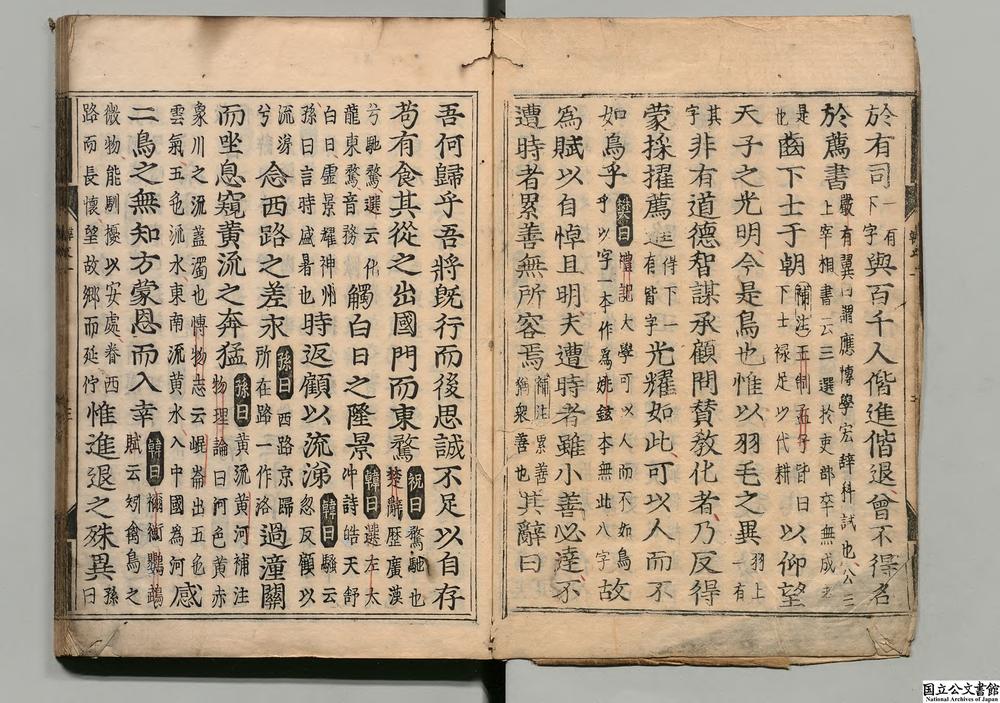 於有司一有下字與百千人偕進偕退曾不得名
於薦書嚴有翼曰謂應博學宏辭科試也公三上宰相書云三選於吏部卒無成
是也齒下士于朝補注王制孟子皆曰下士祿足以代耕以仰望
天子之光明今是鳥也惟以羽毛之異羽上一有
其字非有道德智謀承顧問賛敎化者乃反得
蒙採擢薦進件下一有皆字光耀如此可以人而不
如鳥乎樊曰禮記大學可以人而不如鳥乎以字一本作爲姚鉉本無此八字故
爲賦以自悼且明夫遭時者雖小善必達不
遭時者累善無所容焉補注累善猶衆善也其辭曰
吾何歸乎吾將旣行而後思誠不足以自存
苟有食其從之出國門而東騖祝曰騖馳也楚辭歷廣漠
兮馳騖選云伏龍東騖音務觸白日之隆景韓曰選左太冲詩皓天舒
白日靈景耀神州孫曰言時盛暑也時返顧以流涕韓曰騷云忽反顧以
流涕兮念西路之羌永孫曰西路京歸所在路一作洛過潼關
而坐息窺黃流之奔猛孫曰黃流黃河補注物理論曰河色黃赤
象川之流蓋濁也博物志云崐崙出五色雲氣五色流水東南流黃水入中國爲河感
二鳥之無知方蒙恩而入幸韓曰禰衡鸚鵡賦云矧禽鳥之
微物能馴擾以安處眷西路而長懷望故鄉而延佇惟進退之殊異孫曰
国立公文書館
National Archives of Japan